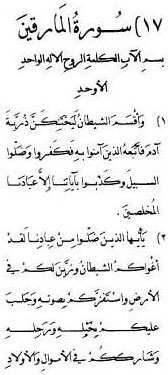 ١٧) سُورَةُ المَارِقِينَ
بسم الآب الكلمة الروح الإله الواحد
الأوحد
١) وَأَقْسَمَ الشَّيطَانُ لَيَحْتَنِكَنَّ ذُرِّيَّةَ
آدَمَ فَاتَّبَعَهُ الذِينَ آمَنُوا بِهِ فَكَفَرُوا وَضَلُّوا
السَّبِيلَ وَكَذَّبُوا بِآيَاتِنَا إِلاَّ عِبَادَنَا
المُخْلَصِينَ.
٢) يَأَيُّهَا الذِينَ ضَلُّوا مِنْ عِبَادِنَا لَقَدْ
أَغْوَاكُمُ الشَّيطَانُ وَزَيَّنَ لَكُمْ فِي
الأَرْضِ وَاسْتَفَزَّكُمْ بِصَوْتِهِ وَجَلَبَ
عَلَيكُمْ بِخَيْلِهِ وَرَجِلِهِ
وَشَارَكَكُمْ فِي الأَمْوَالِ وَالأَوْلاَدِ